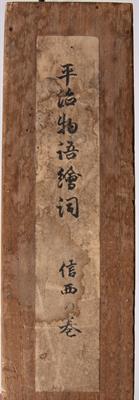 平治物語繪詞 信西の巻